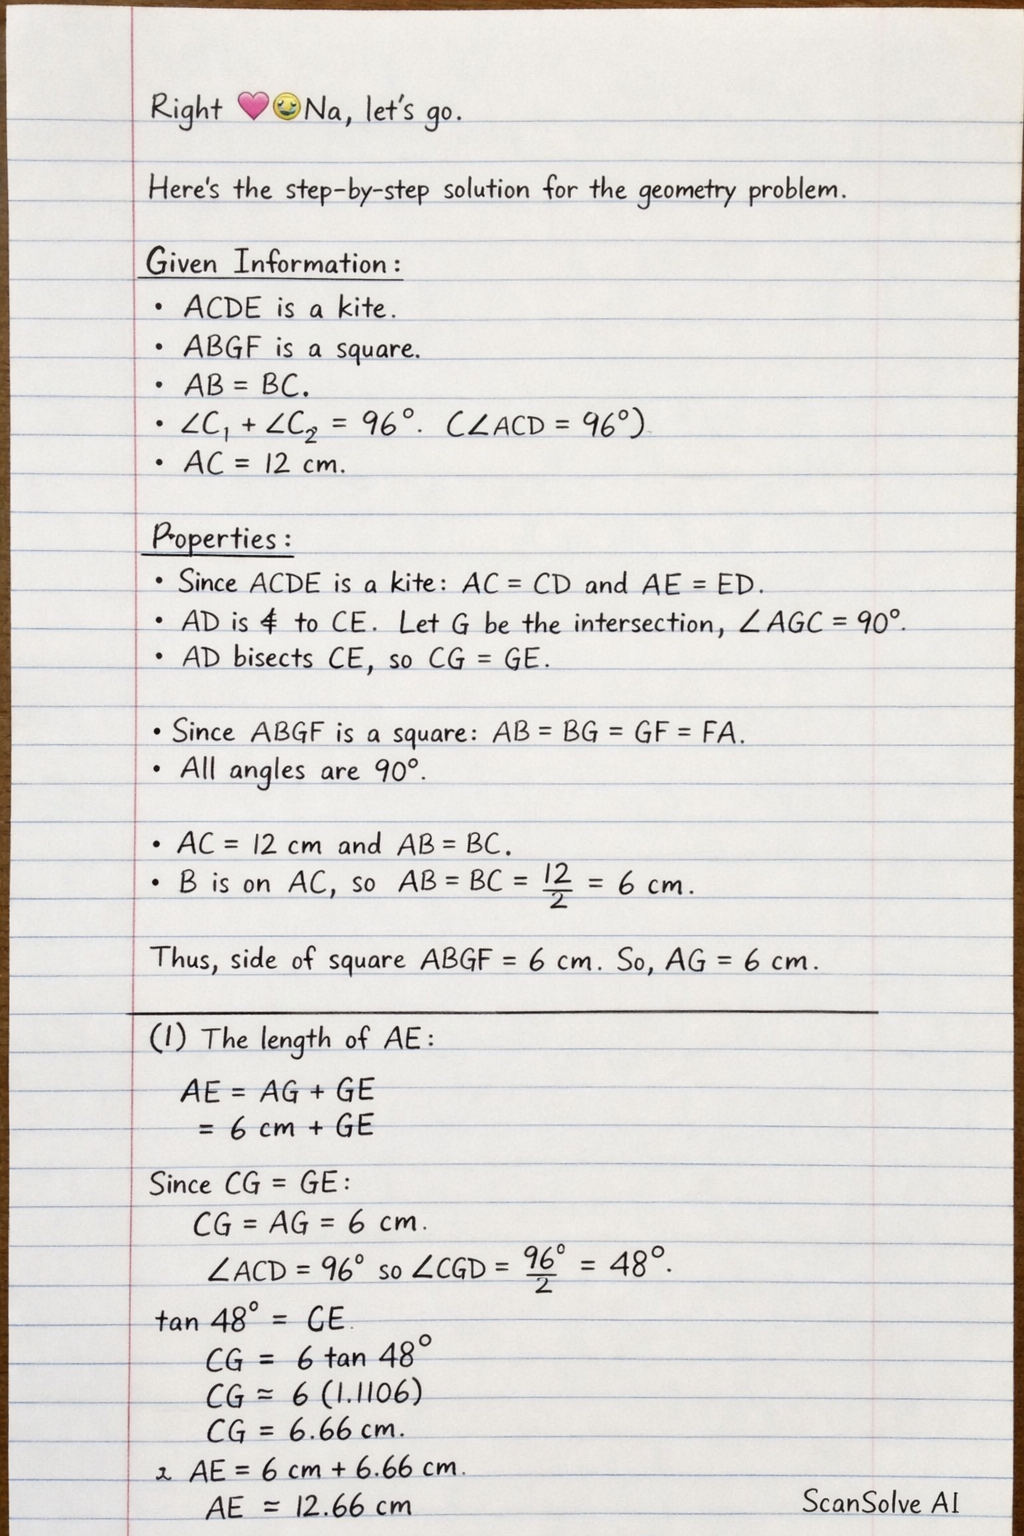 Right 💗😂Na, let's go.
Here's the step-by-step solution for the geometry problem.
Given Information:
• ACDE is a kite.
• ABGF is a square.
• AB = BC.
• ∠C₁ + ∠C₂ = 96°. (∠ACD = 96°)
• AC = 12 cm.
Properties:
• Since ACDE is a kite: AC = CD and AE = ED.
• AD is to CE. Let G be the intersection, ∠AGC = 90°.
• AD bisects CE, so CG = GE.
• Since ABGF is a square: AB = BG = GF = FA.
• All angles are 90°.
• AC = 12 cm and AB = BC.
• B is on AC, so AB = BC = 12/2 = 6 cm.
Thus, side of square ABGF = 6 cm. So, AG = 6 cm.
(1) The length of AE:
AE = AG + GE
= 6 cm + GE
Since CG = GE:
CG = AG = 6 cm.
∠ACD = 96° so ∠CGD = 96°/2 = 48°.
tan 48° = CE.
CG = 6 tan 48°
CG ≈ 6 (1.1106)
CG = 6.66 cm.
AE = 6 cm + 6.66 cm.
AE ≈ 12.66 cm
ScanSolve AI